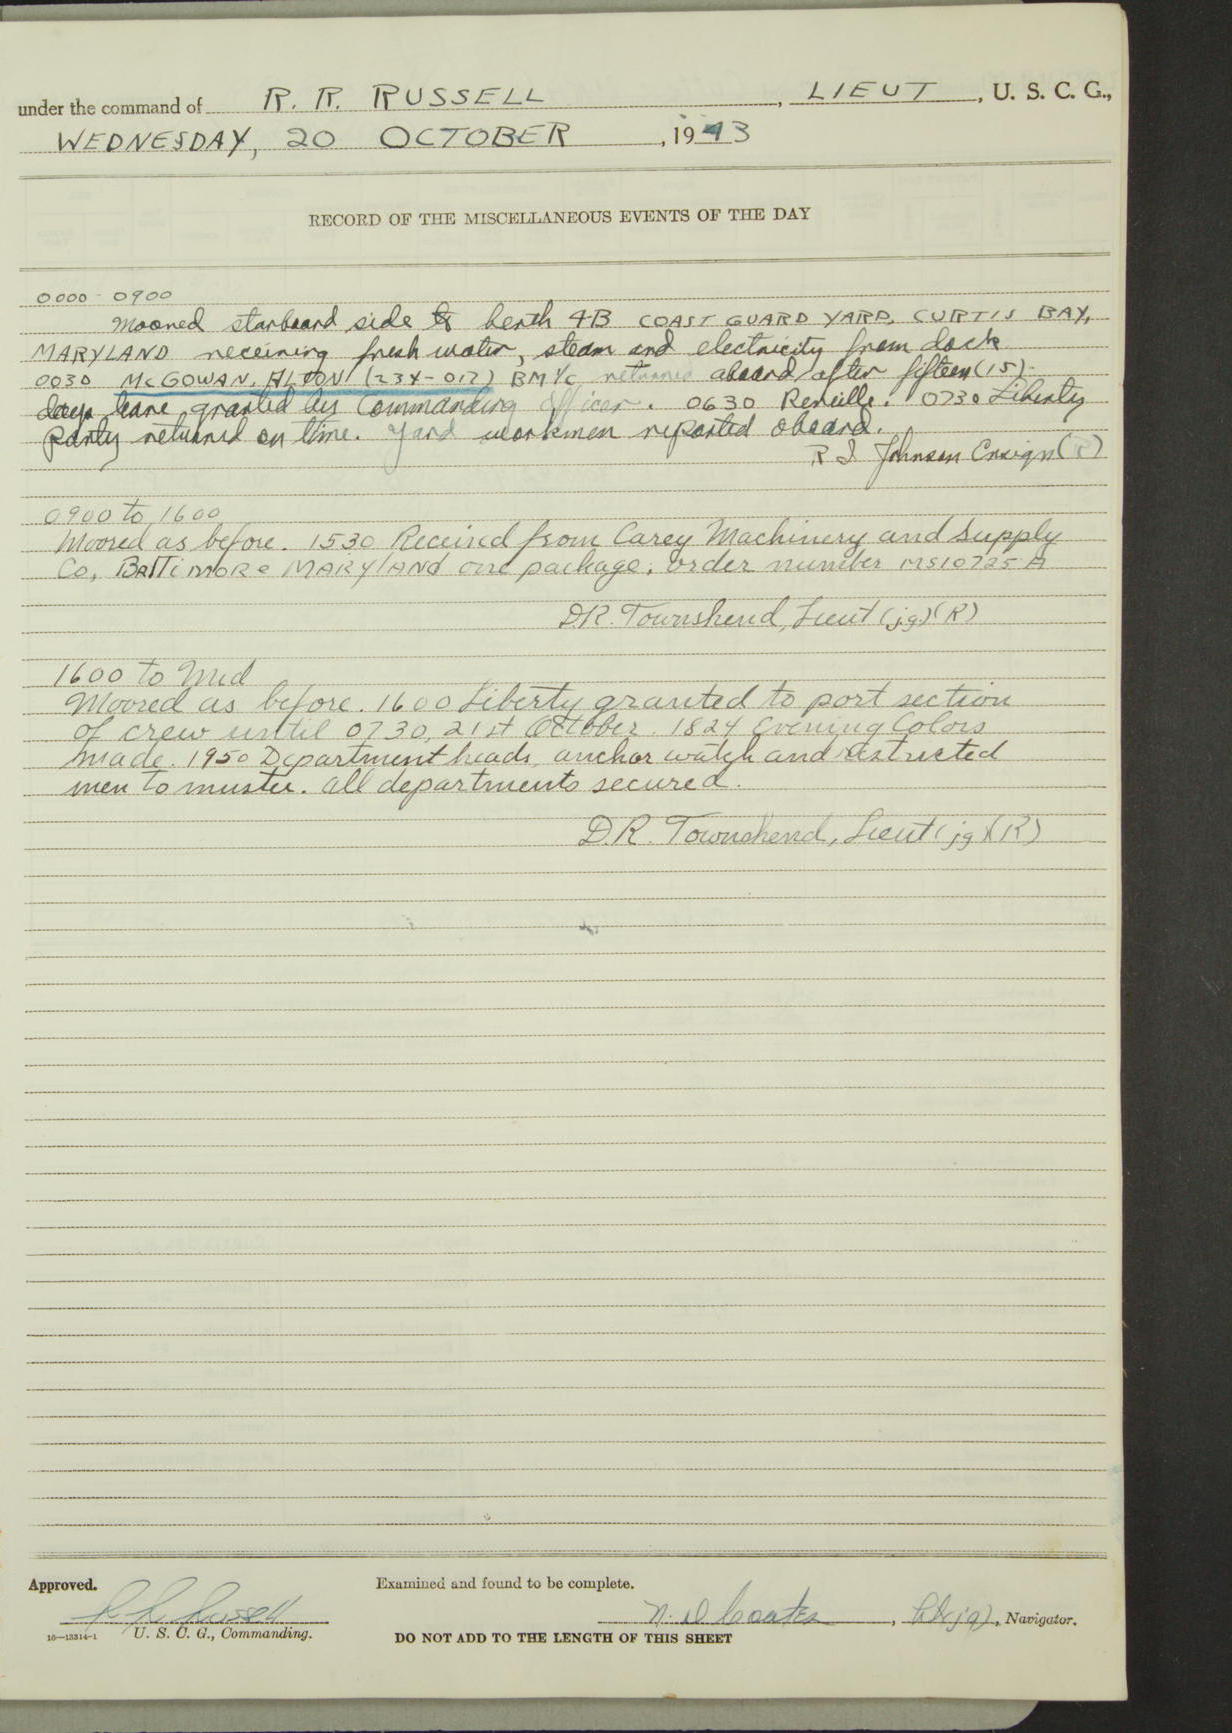 under the command of R. R. RUSSELL, LIEUT, U. S. C. G.,
WEDNESDAY, 20 OCTOBER, 1943
RECORD OF THE MISCELLANEOUS EVENTS OF THE DAY
0000 - 0900
Moored starboard side to berth 4B COAST GUARD YARD, CURTIS BAY,
MARYLAND receiving fresh water, steam and electricity from dock
0030 McGOWAN, ALTON (234-012) BM1/c returned aboard after fifteen (15)
days leave granted by Commanding Officer. 0630 Reveille. 0730 Liberty
Party returned on time. Yard workmen reported aboard.
R J Johnson Ensign (R)
0900 to 1600
Moored as before. 1530 Received from Carey Machinery and Supply
Co, BalTimoRe MARYlAND one package, order number MS10725-A
D.R. Townshend, Lieut (jg) (R)
1600 to Mid
Moored as before. 1600 Liberty granted to port section
of crew until 0730, 21st October. 1824 Evening Colors
made. 1950 Department heads, anchor watch and restricted
men to muster. All departments secured.
D.R. Townshend, Lieut (jg) (R)
Approved.
Examined and found to be complete.
R R Russell
N. D Coates, Lt(jg), Navigator.
16—13314-1 U. S. C. G., Commanding.
DO NOT ADD TO THE LENGTH OF THIS SHEET